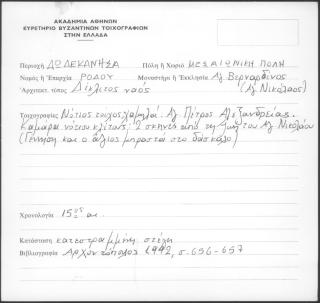 ΑΚΑΔΗΜΙΑ ΑΘΗΝΩΝ
ΕΥΡΕΤΗΡΙΟ ΒΥΖΑΝΤΙΝΩΝ ΤΟΙΧΟΓΡΑΦΙΩΝ
ΣΤΗΝ ΕΛΛΑΔΑ
Περιοχή ΔΩΔΕΚΑΝΗΣΑ Πόλη ή Χωριό ΜΕΣΑΙΩΝΙΚΗ ΠΟΛΗ
Νομός ή Ἐπαρχία ΡΟΔΟΥ Μοναστήρι ή Ἐκκλησία Ἁγ Βερναρδίνος
Ἀρχιτεκτ. τύπος Δίκλιτος ναός (Ἁγ Νικόλαος)
Τοιχογραφίες Νότιος τοίχος χαμηλά: Ἁγ. Πέτρος Ἀλεξανδρείας.
Καμάρα νότιου κλίτους: 2 σκηνές από τη ζωή του Ἁγ Νικολάου
(Γέννηση και ο άγιος μπροστά στο δάσκαλο)
Χρονολογία 15ος αι.
Κατάσταση κατεστραμμένη στέγη
Βιβλιογραφία Αρχοντόπουλος 1992, σ. 656-657